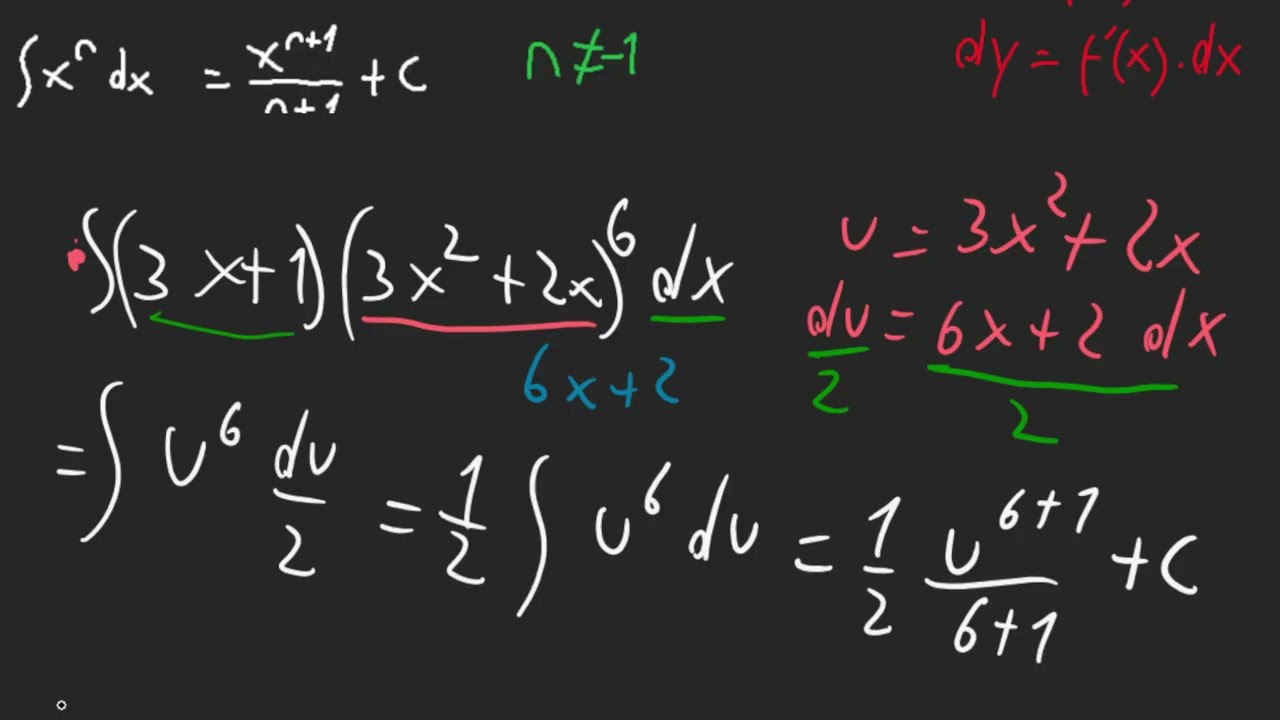 ∫xⁿ dx = xⁿ⁺¹/n+1 + C n ≠ -1 dy = f'(x).dx
∫(3x+1)(3x²+2x)⁶ dx u = 3x²+2x
du/2 = 6x+2 dx/2
6x+2
= ∫ u⁶ du/2 = 1/2 ∫ u⁶ du = 1/2 u⁶⁺¹/6+1 + C